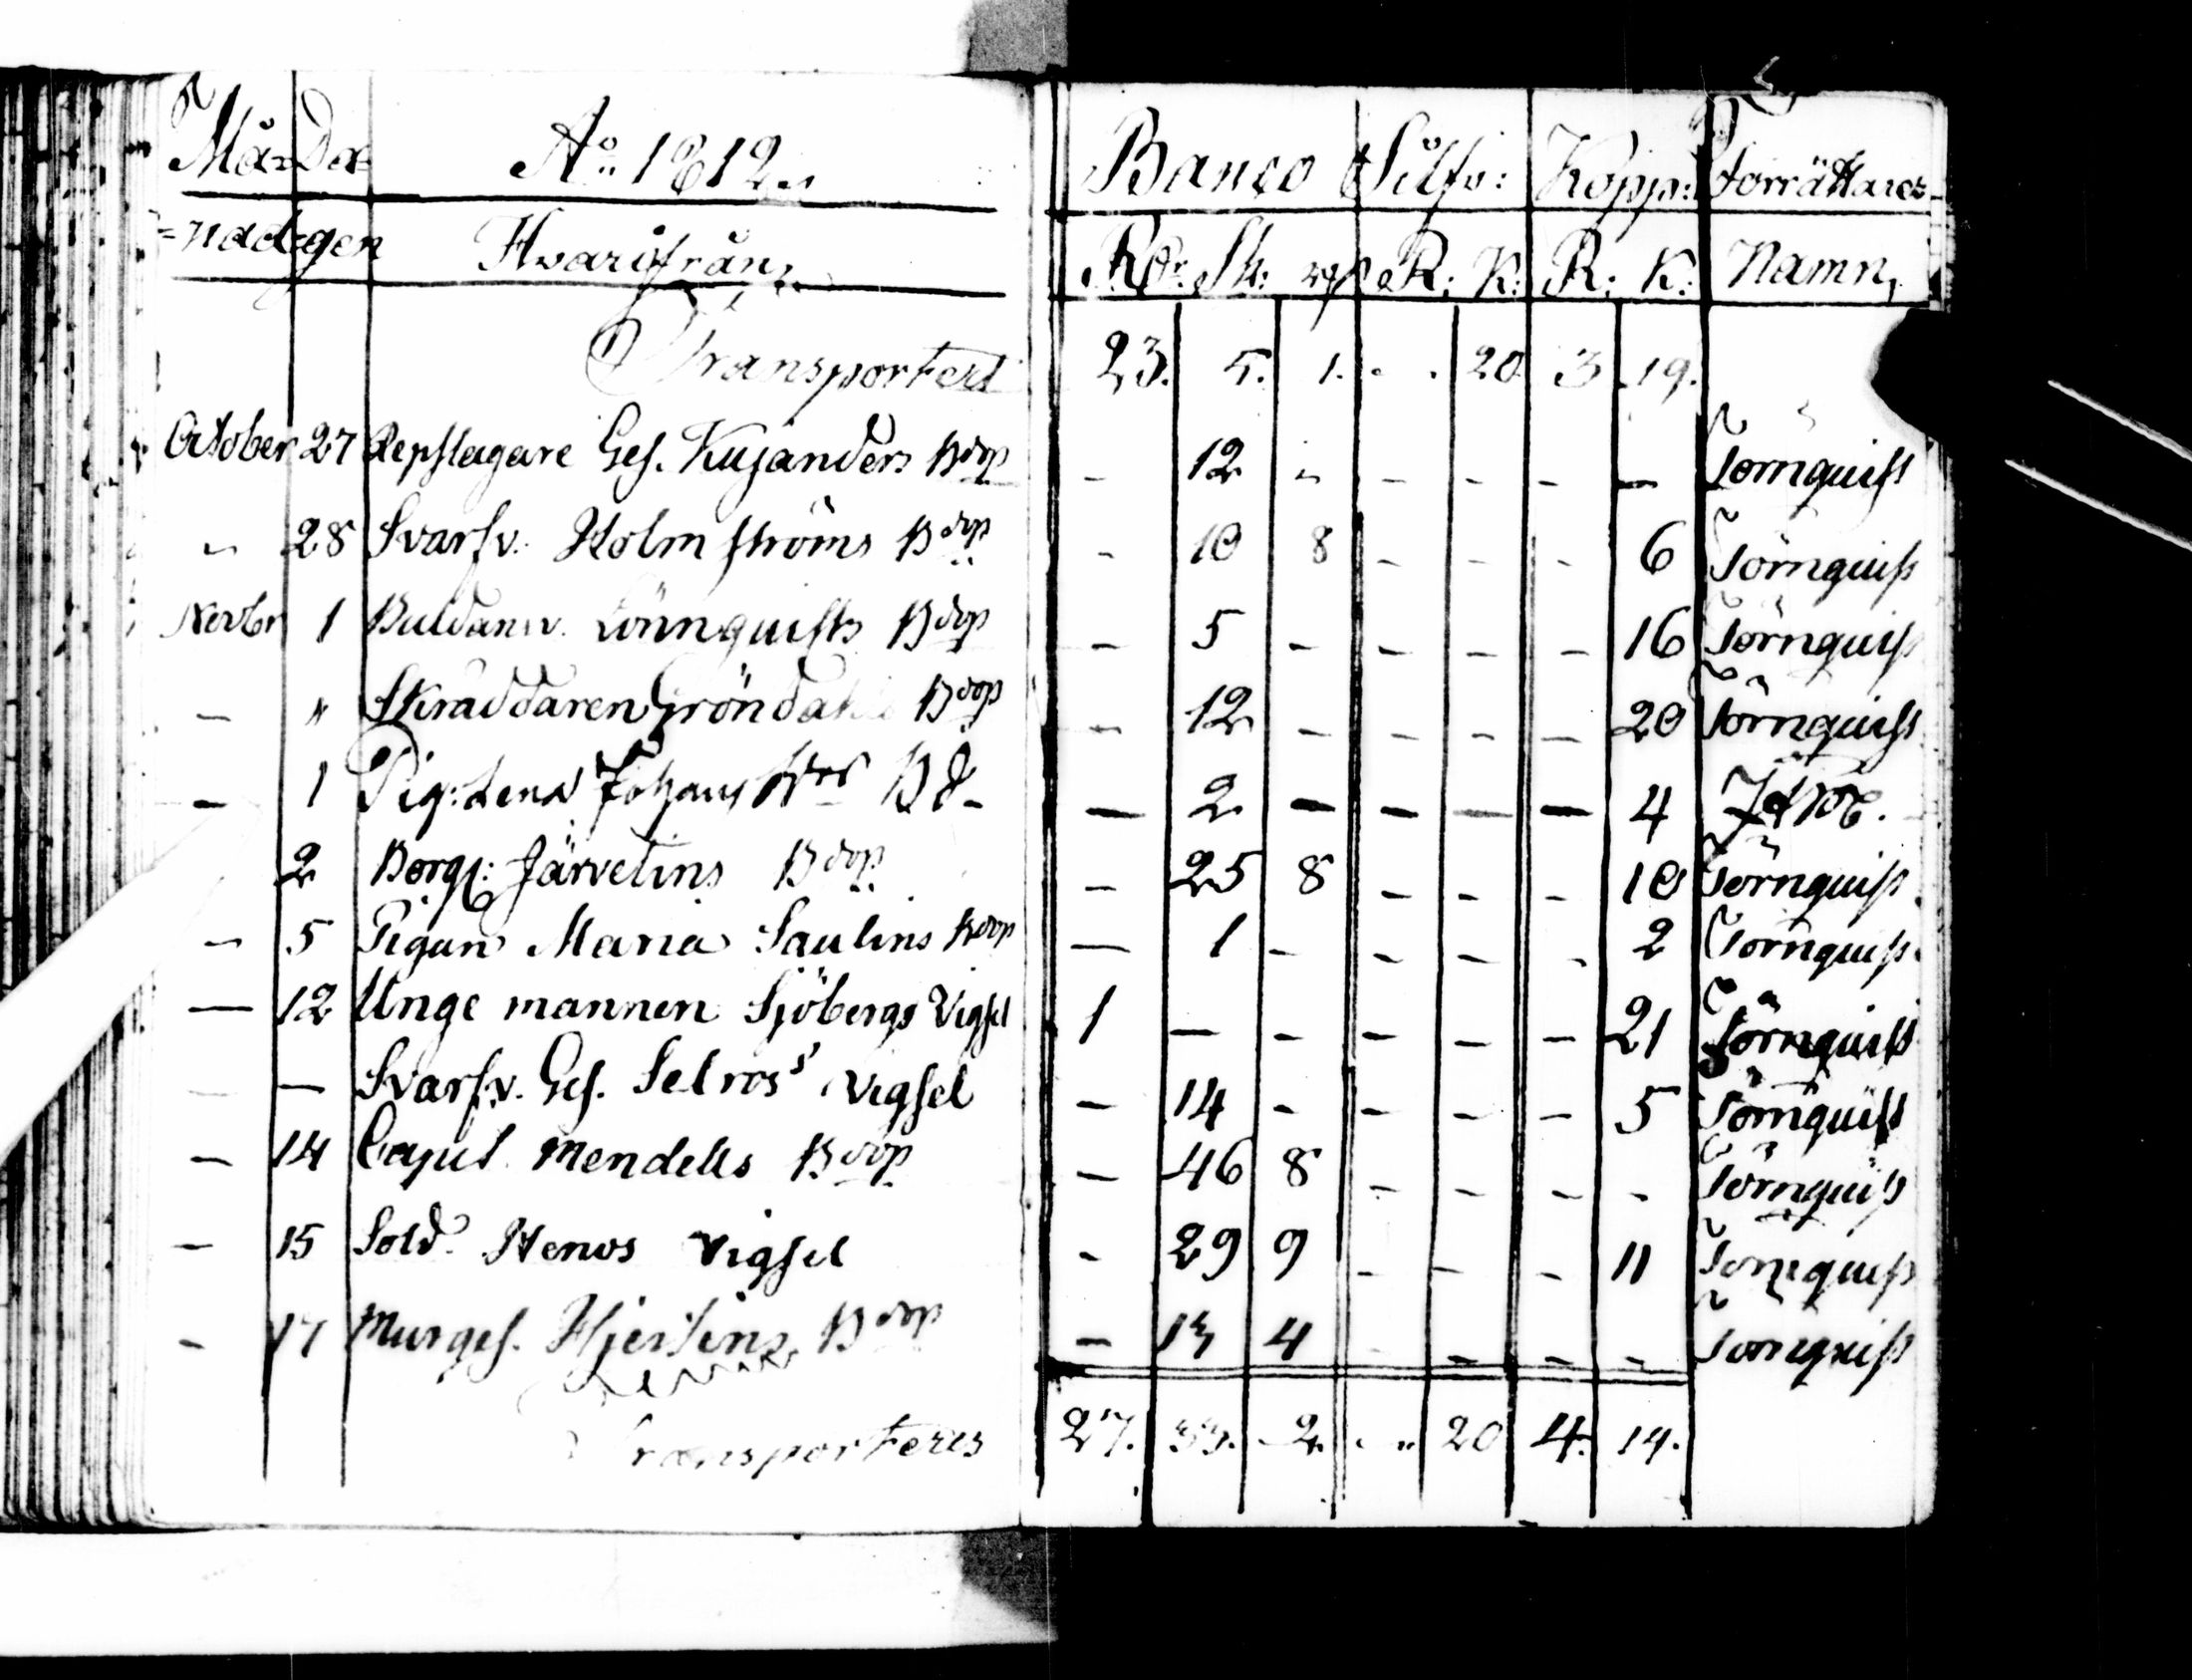 Må= Da= Ao 1812. Banco Silfv: Kopp: Förrättares
=nad =gen Hvarifrån, Rdr: Sk: rst R: K: R: K: Namn,
Transporterl 23. 5. 1. . . 20 3 19.
October 27 Repslagare Ges. Kujanders Bdop - 12 - - - - - Törnquist
" 28 Svarfv. Holmströms Bdop - 10 8 - - - 6 Törnquist
Novbr 1 Lönnquists Bdop - 5 - - - - 16 Törnquist
- " Skräddaren Gröndahls Bdop - 12 - - - - 20 Törnquist
- 1 Pig: Lena Johans Bd - 2 - - - - 4
2 Borg: Järvelins Bdop - 25 8 - - - 10 Törnquist
- 5 Pigan Maria Saulins Bdop - 1 - - - - 2 Törnquist
- 12 Unge mannen Sjöbergs Vigsel 1 - - - - - 21 Törnquist
- - Svarfv. Ges. Selros' vigsel - 14 - - - - 5 Törnquist
- 14 Mendells Bdop - 46 8 - - - - Törnquist
- 15 Sold. Henos Vigsel - 29 9 - - - 11 Törnquist
- 17 Murges. Hjerlins Bdop - 13 4 - - - - Törnquist
Transporteres 27. 33. 2. . " 20 4. 19.